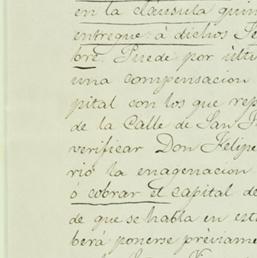 en la clausula quin
entregue à dichos Se
bre. Puede por ùlti
una compensacion
pital con los que rep
de la Calle de San F
verificar Don Felipe
rió la enagenacion
ó cobrar el capital de
de que se habla en est
berá ponerse prèviame